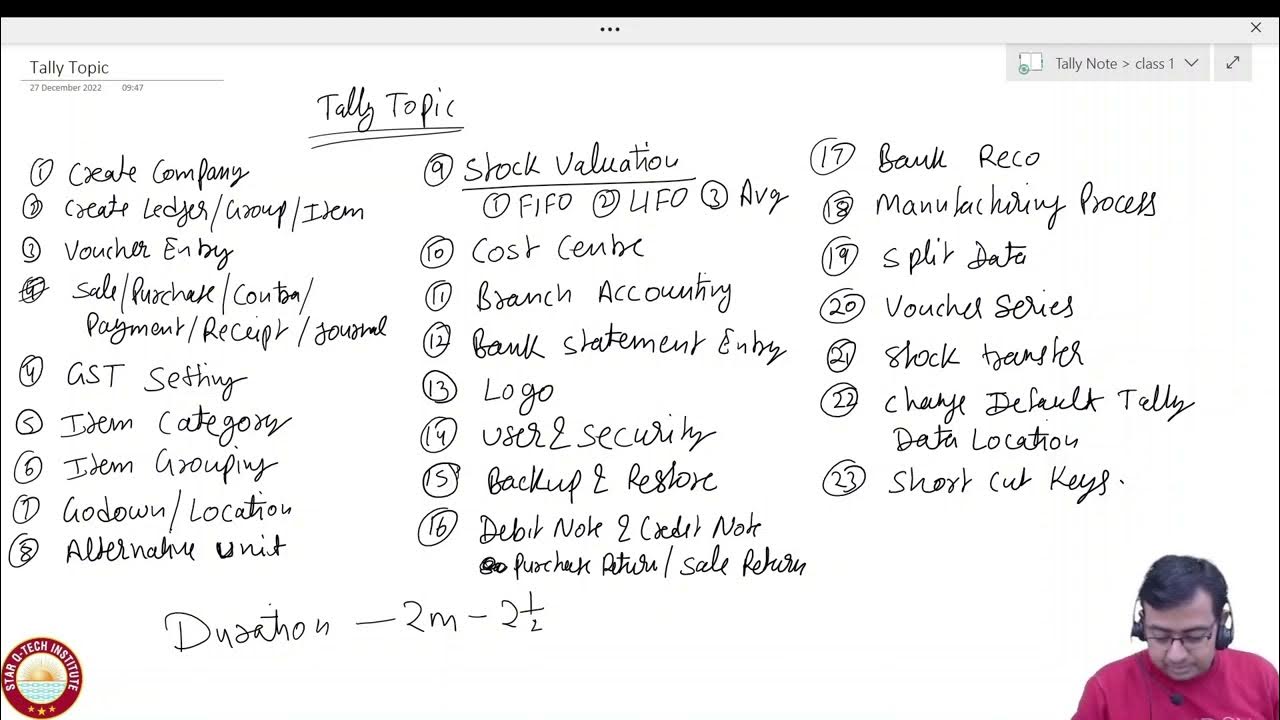 Tally Topic
27 December 2022 09:47
Tally Note > class 1
Tally Topic
① Create Company
② Create Ledger/Group/Item
③ Voucher Entry
Sale/Purchase/Contra/
Payment/Receipt/Journal
④ GST Setting
⑤ Item Category
⑥ Item Grouping
⑦ Godown/Location
⑧ Alternative Unit
⑨ Stock Valuation
① FIFO ② LIFO ③ Avg
⑩ Cost Centre
⑪ Branch Accounting
⑫ Bank Statement Entry
⑬ Logo
⑭ User & Security
⑮ Backup & Restore
⑯ Debit Note & Credit Note
Purchase Return/Sale Return
⑰ Bank Reco
⑱ Manufacturing Process
⑲ Split Data
⑳ Voucher Series
㉑ Stock transfer
㉒ Change Default Tally
Data Location
㉓ Short Cut Keys.
Duration — 2m - 2½
STAR Q-TECH INSTITUTE